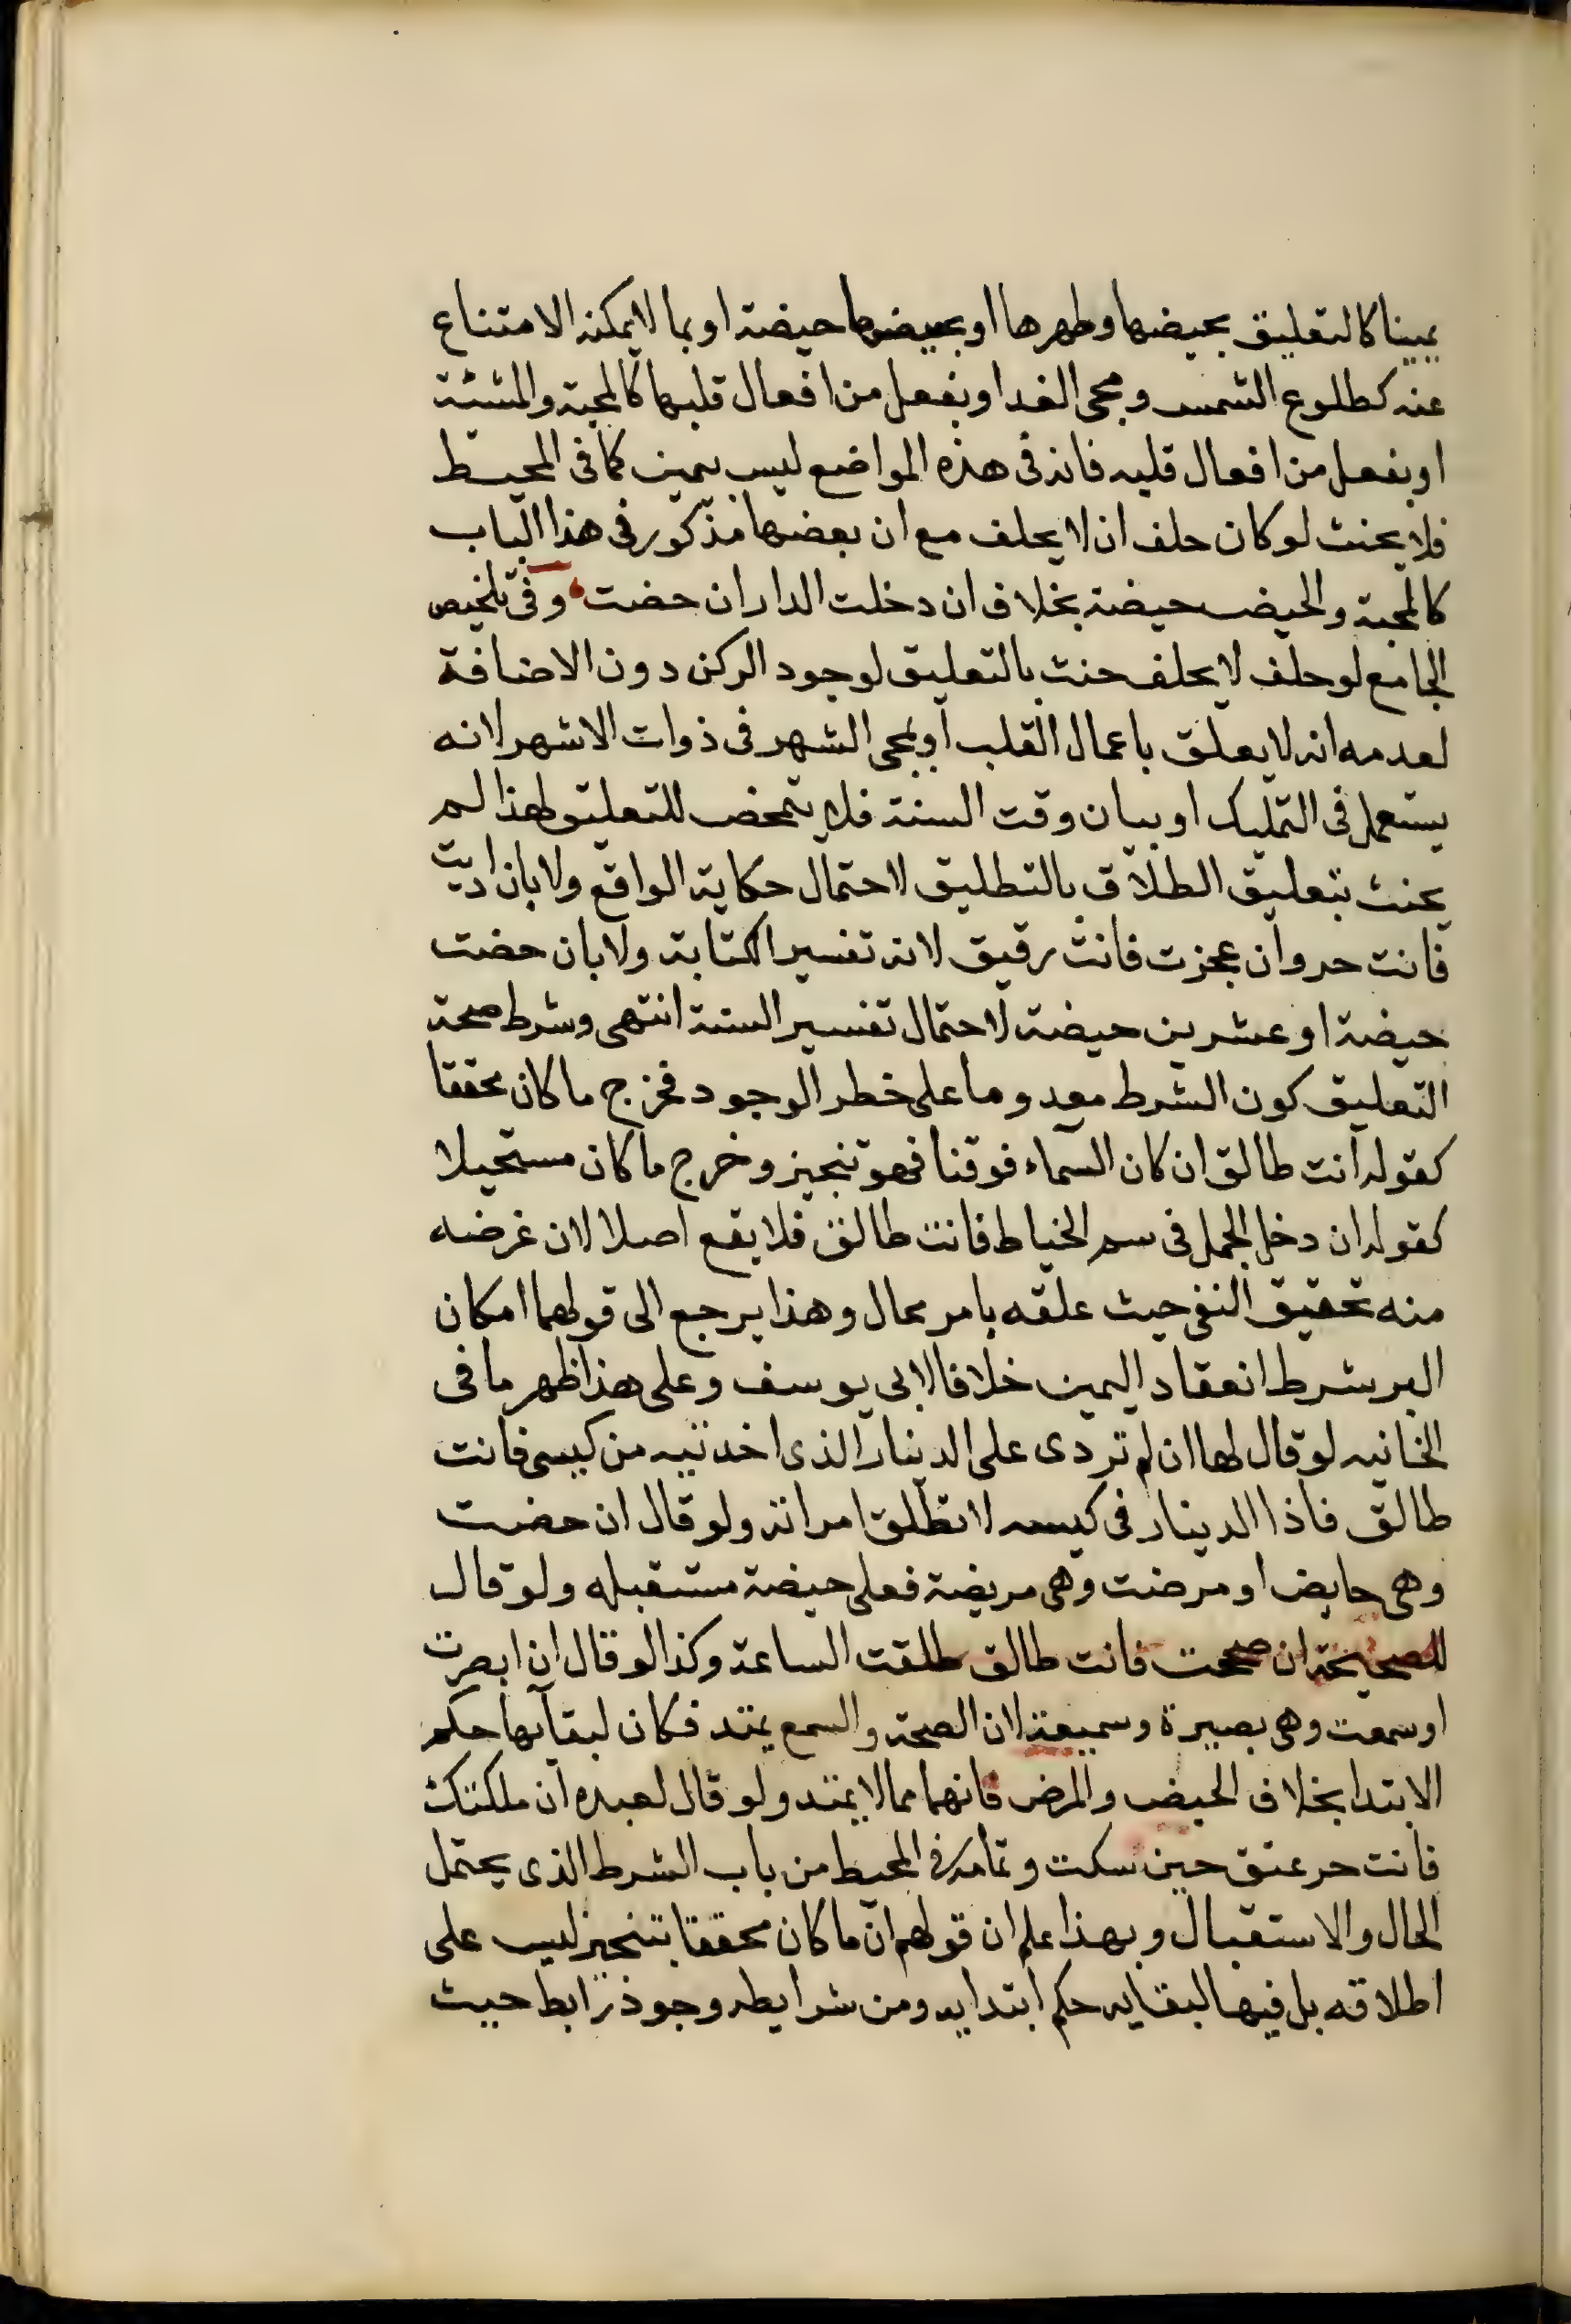 يمينا كالتعليق بحيضها وطهرها او بحيضها حيضة او بما لا يمكنه الامتناع
عنه كطلوع الشمس ومجى الغد او بفعل من افعال قلبها كالمحبة والمشئة
او بفعل من افعال قلبه فانه فى هذه المواضع ليس بيمين كما فى المحيط
فلا يحنث لو كان حلف ان لا يحلف مع ان بعضها مذكور فى هذا الباب
كالمحبة والحيض حيضة بخلاف ان دخلت الدار ان حضت وفى تلخيص
الجامع لو حلف لا يحلف حنث بالتعليق لوجود الركن دون الاضافة
لعدمه انه لا يعلق باعمال القلب او بمجى الشهر فى ذوات الاشهر لانه
يستعمل فى التمليك او بيان وقت السنة فلا يتمحض للتعليق لهذا لم
يحنث بتعليق الطلاق بالتطليق لاحتمال حكاية الواقع ولا بان اديت
فانت حر وان عجزت فانت رقيق لانه تفسير الكتابة ولا بان حضت
حيضة او عشرين حيضة لاحتمال تفسير السنة انتهى وشرط صحة
التعليق كون الشرط معدوما على خطر الوجود فخرج ما كان محققا
كقوله انت طالق ان كان السماء فوقنا فهو تنجيز وخرج ما كان مستحيلا
كقوله ان دخل الجمل فى سم الخياط فانت طالق فلا يقع اصلا لان غرضه
منه تحقيق النفى حيث علقه بامر محال وهذا يرجع الى قولهما امكان
البر شرط انعقاد اليمين خلافا لابى يوسف وعلى هذا ظهر ما فى
الخانيه لو قال لها ان لم تردى على الدينار الذى اخدتيه من كيسى فانت
طالق فاذا الدينار فى كيسه لا تطلق امراته ولو قال ان حضت
وهى حايض او مرضت وهى مريضة فعلى حيضة مستقبله ولو قال
للصحيحة ان صححت فانت طالق طلقت الساعة وكذا لو قال ان ابصرت
او سمعت وهى بصيرة وسميعة لان الصحة والسمع يمتد فكان لبقآئها حكم
الابتدا بخلاف الحيض والمرض فانهما مما لا يمتد ولو قال لعبده ان ملكتك
فانت حر عتق حين سكت وتمامه فى المحيط من باب الشرط الذى يحتمل
الحال والاستقبال وبهذا علم ان قولهم ان ما كان محققا تنجيز ليس على
اطلاقه بل فيها لبقايه حكم ابتدايه ومن شرايطه وجود رابط حيث